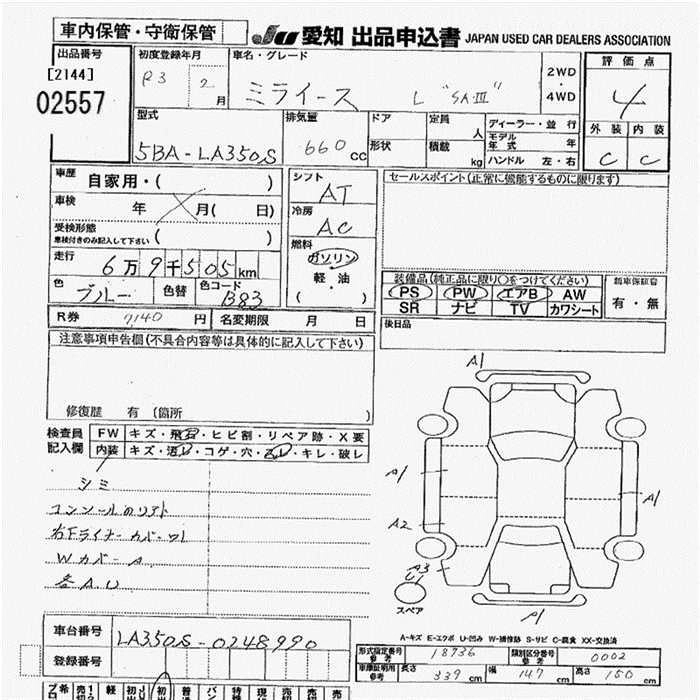 車内保管・守衛保管
JU 愛知 出品申込書 JAPAN USED CAR DEALERS ASSOCIATION
出品番号
[2144]
02557
初度登録年月
R3 2月
車名・グレード
ミライース L "SAⅢ"
2WD
・
4WD
評価点
4
外装 内装
C C
型式
5BA-LA350S
排気量
660cc
ドア
形状
定員
人
積載
kg
ディーラー・並行
モデル
年式 年
ハンドル 左・右
車歴
自家用・( )
車検
年 月( 日)
受検形態
車検付きのみ記入して下さい ( )
走行
6万9千505km
色
ブルー
色替
色コード
B83
シフト
AT
冷房
AC
燃料
ガソリン
軽・油
( )
セールスポイント(正常に機能するものに限ります)
装備品(純正品に限り○をつけてください)
PS PW エアB AW
SR ナビ TV カワシート
新車保証書
有・無
R券 7140円
名変期限 月 日
後日品
注意事項申告欄(不具合内容等は具体的に記入して下さい)
修復歴 有(箇所 )
検査員
記入欄
FW キズ・飛石・ヒビ割・リペア跡・X要
内装 キズ・汚レ・コゲ・穴・スレ・キレ・破レ
シミ
コンソールのリアト
右Fライナーカバーワレ
Wカバー A
各AU
A1
A1
A1
A2
A3
U1
A1
スペア
A-キズ E-エクボ U-凹み W-補修跡 S-サビ C-腐食 XX-交換済
車台番号
LA350S-0248990
登録番号
形式指定番号
参考
18736
類別区分番号
参考
0002
車庫証明用
参考
長さ 339cm 幅 147cm 高さ 150cm